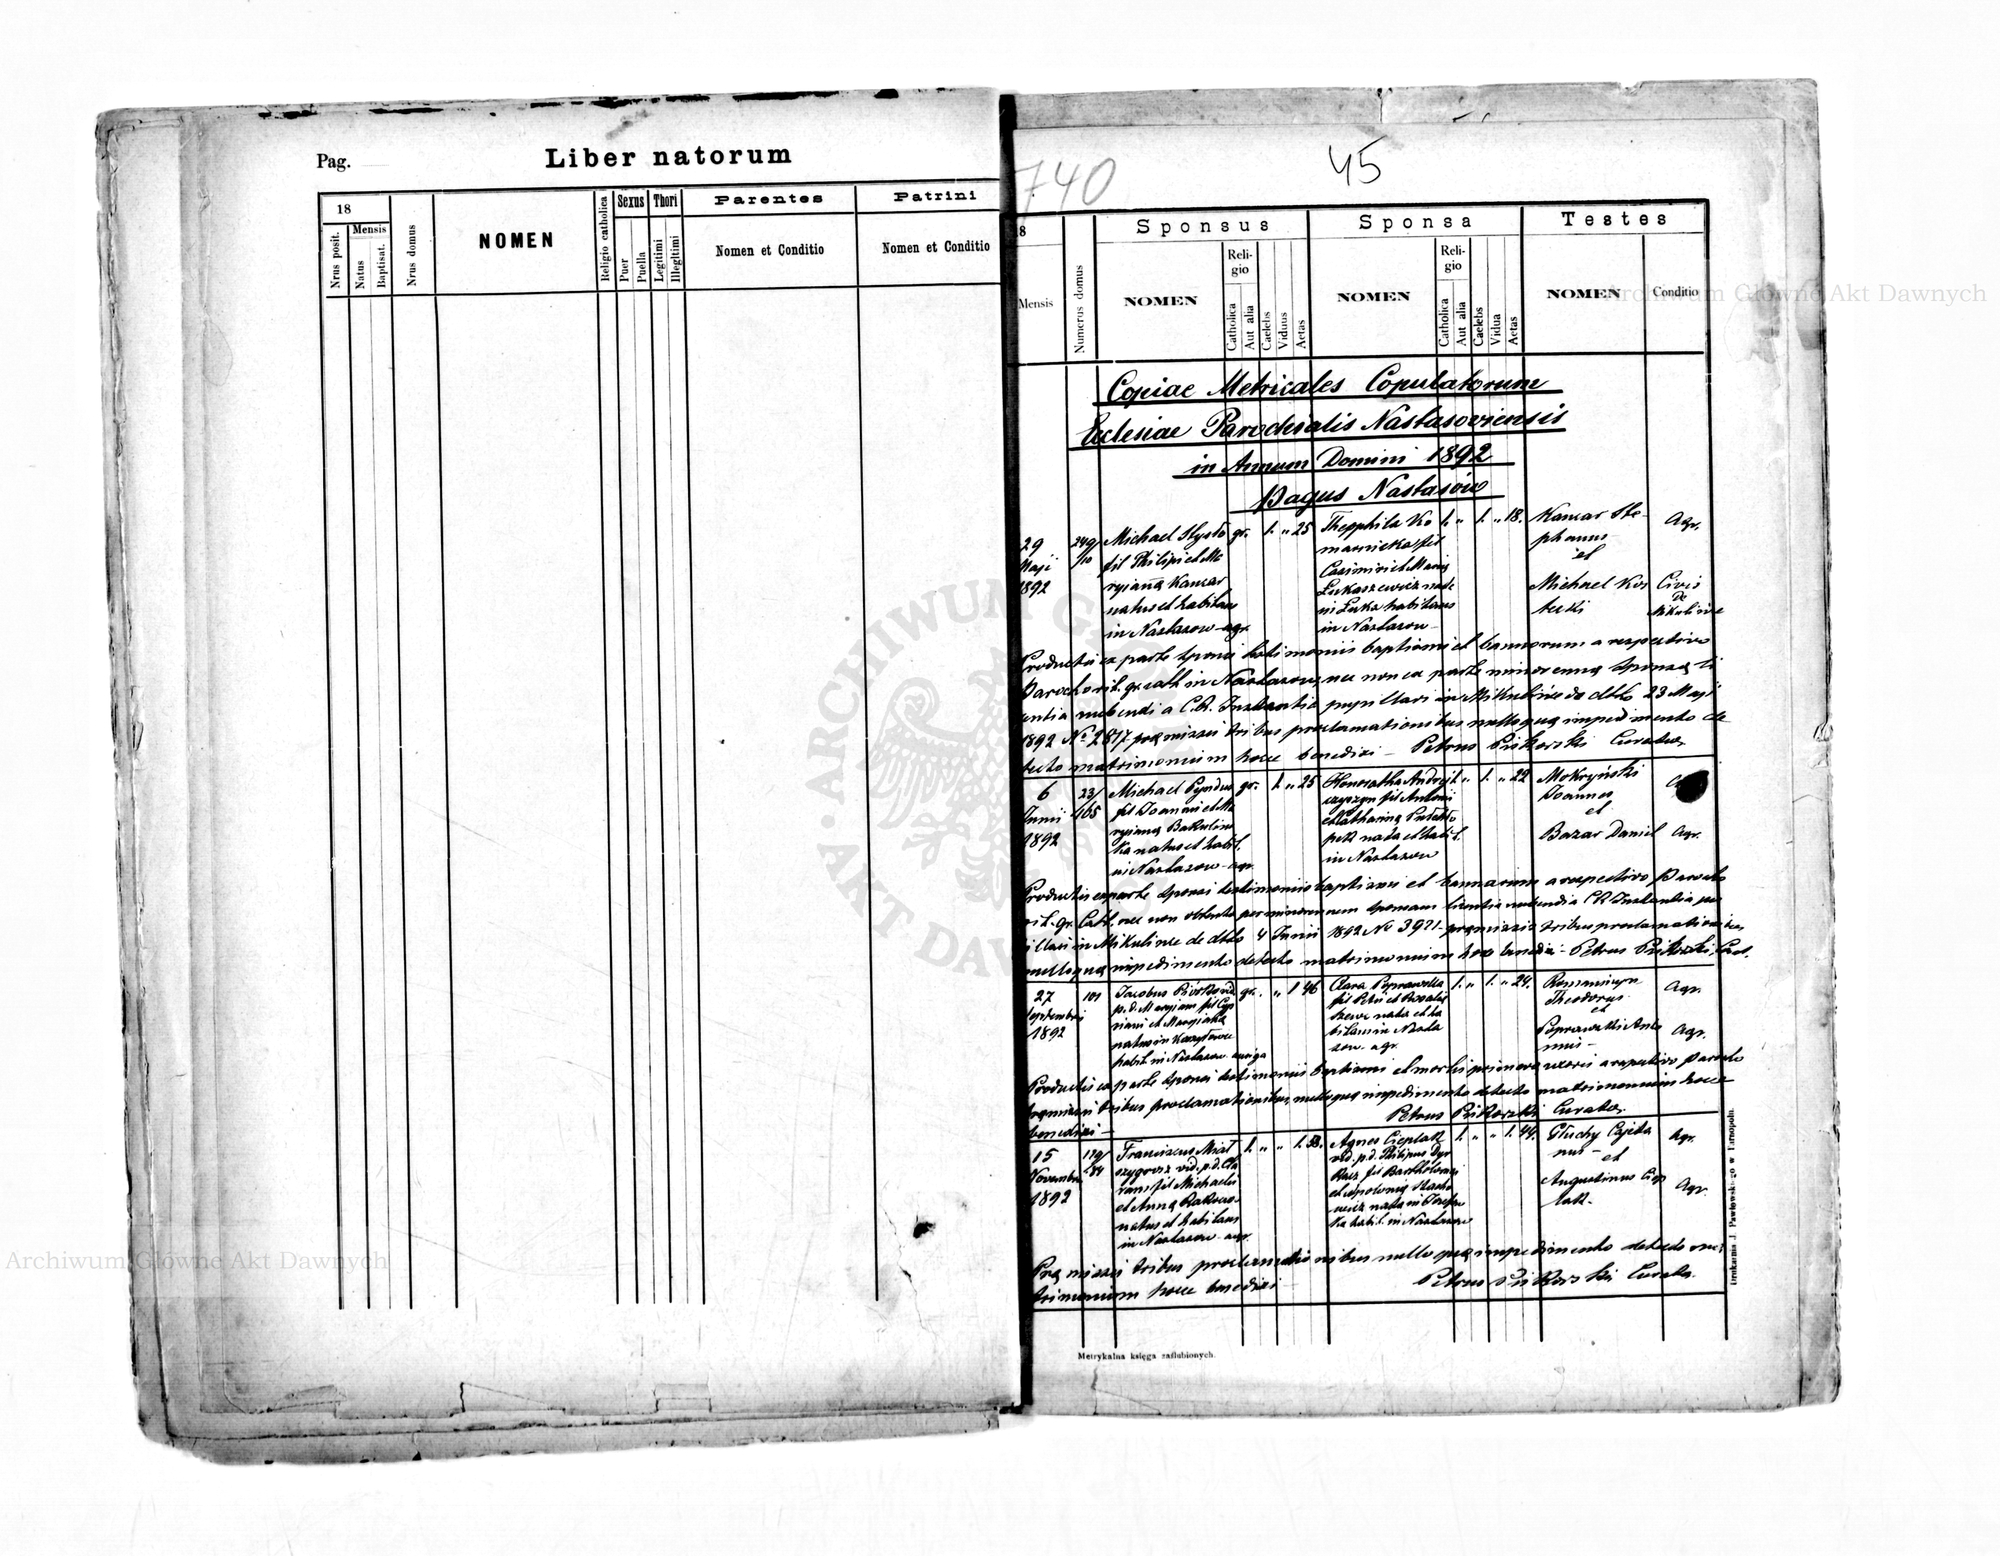 Pag.
Liber natorum
18
Nrus posit.
Mensis
Natus
Baptisat.
Nrus domus
NOMEN
Religio catholica
Sexus
Puer
Puella
Thori
Legitimi
Illegitimi
Parentes
Nomen et Conditio
Patrini
Nomen et Conditio
740
45
8
Mensis
Numerus domus
Sponsus
NOMEN
Reli-
gio
Catholica
Aut alia
Caelebs
Viduus
Aetas
Sponsa
NOMEN
Reli-
gio
Catholica
Aut alia
Caelebs
Vidua
Aetas
Testes
NOMEN
Conditio
Copiae Metricales Copulatorum
Ecclesiae Parochialis Nastasoviensis
in Annum Domini 1892
Pagus Nastasów
29
Maji
1892
Michael
fil Philipi et Ma
ryjanna Kanzar
natus et habitans
in Nastasow agr.
gr. 1. „ 25
Theophila Ko
marnicka fil
Casimiri et Maria
Lukaszewicz nata
in Luka habitans
in Nastasow
1. „ 1. „ 18.
Kanzar Ste-
phanus
et
Michael Kos
tecki
Agr.
Civis
de
Mikulince
Productis ex parte sponsi testimoniis baptismi et bannorum a respectivo
Parocho rit. gr. cath in Nastasow, nec non ex parte minorenna sponsa li
centia nubendi a C.R. Instantia pupillari in Mikulince de dtto 23 Maji
1892 No 2817 præmissis tribus proclamationibus nulloque impedimento de
tecto matrimonium hocce benedixi - Petrus Curatus
6
Junii
1892
23/
105
Michael
fil Joannis et Ma
ryjanna
natus et habit.
in Nastasow agr.
gr. 1. „ 25
Honoratha
fil Antonii
et Catharina
nata et habit.
in Nastasow
„ 1. „ 22
Mokryński
Joannes
et
Bazar Daniel
Agr.
Productis ex parte sponsi testimoniis baptismi et bannorum a respectivo Parocho
rit. gr. Cath. nec non obtenta per minorennem sponsam licentia nubendi a C.R. Instantia pu
pillari in Mikulince de dtto 4 Junii 1892 No 3921 præmissis tribus proclamationibus
nulloque impedimento detecto matrimonium hocce benedixi - Petrus
27
Septembris
1892
101
Jacobus
natus in
habit. in Nastasow auriga
gr. „ 1 46
Clara Poprawska
fil Petri et Rosalia
nata et ha
bitans in Nasta
sow. agr.
1. „ 1. „ 24.
Theodorus
et
Poprawski Anto
nius -
Agr.
Agr.
Productis ex parte sponsi testimoniis baptismi et mortis prioris uxoris a respectivo Parocho
præmissis tribus proclamationibus, nulloque impedimento detecto matrimonium hocce
benedixi - Petrus Curatus.
15
Novembris
1892
Franciscus
vid. p.d. Cla
ram fil Michaelis
et Anna
natus et habitans
in Nastasow agr.
1. „ „ 1. 53.
Agnes Cieplak
vid. p.d. Philipus
fil Bartholomei
et Apolonia
nata in
habit. in Nastasow
1. „ „ 1. 44.
Głuchy Cajeta
nus -
et
Augustinus Ciep
lak.
Agr.
Agr.
Præmissis tribus proclamationibus nulloque impedimento detecto ma
trimonium hocce benedixi
Petrus Curatus.
Metrykalna księga zaślubionych.
Drukarnia J. Pawłowskiego w Tarnopolu.
Archiwum Główne Akt Dawnych
Archiwum Główne Akt Dawnych
ARCHIWUM GŁÓWNE · AKT DAWNYCH